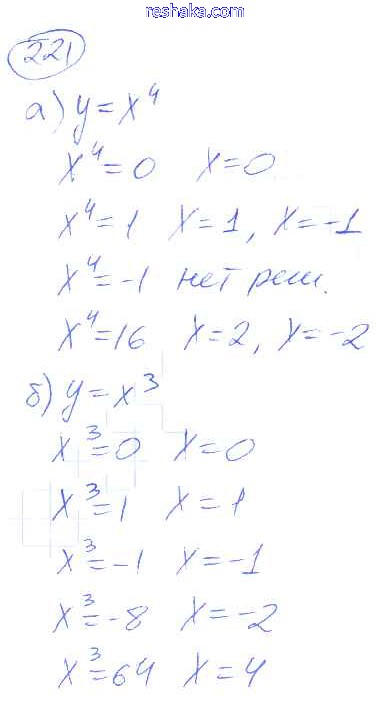 reshaka.com
221
а) y = x⁴
x⁴ = 0 x = 0
x⁴ = 1 x = 1, x = -1
x⁴ = -1 нет реш.
x⁴ = 16 x = 2, x = -2
б) y = x³
x³ = 0 x = 0
x³ = 1 x = 1
x³ = -1 x = -1
x³ = -8 x = -2
x³ = 64 x = 4